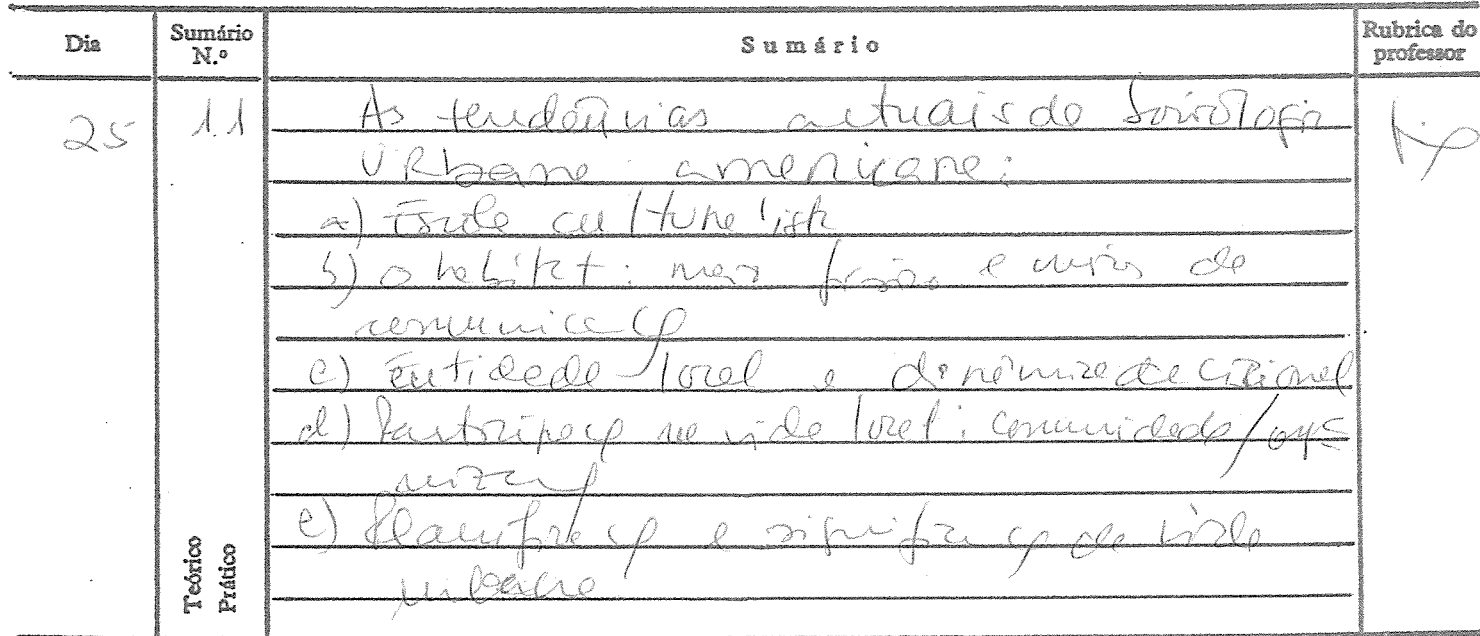 Dia Sumário N.º Sumário Rubrica do professor
25 11 As tendências actuais da Sociologia
Urbana americana:
a) Escola culturalista
b) o habitat: meio físico e meio de
comunicação
c) Entidade local e dinâmica decisional
d) Participação na vida local: comunidade/orga
nização
e) Planificação e significação da vida
urbana
Teórico
Prático